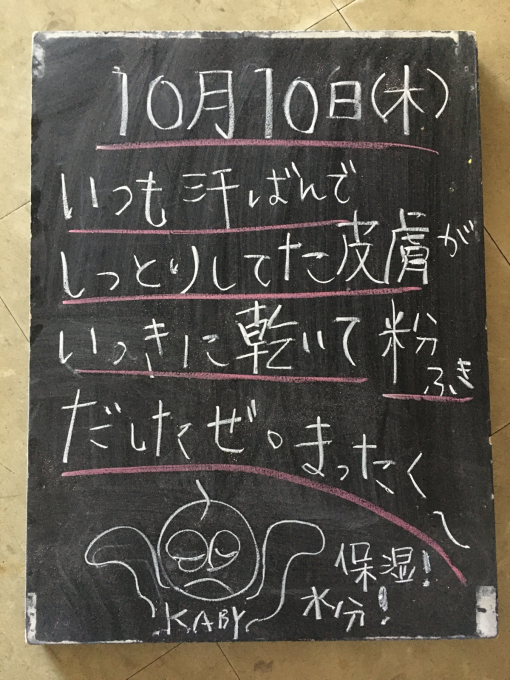 10月10日(木)
いつも汗ばんで
しっとりしてた皮膚が
いっきに乾いて粉ふき
だしたぜ。まったく〜
保湿!
水分!
KABY